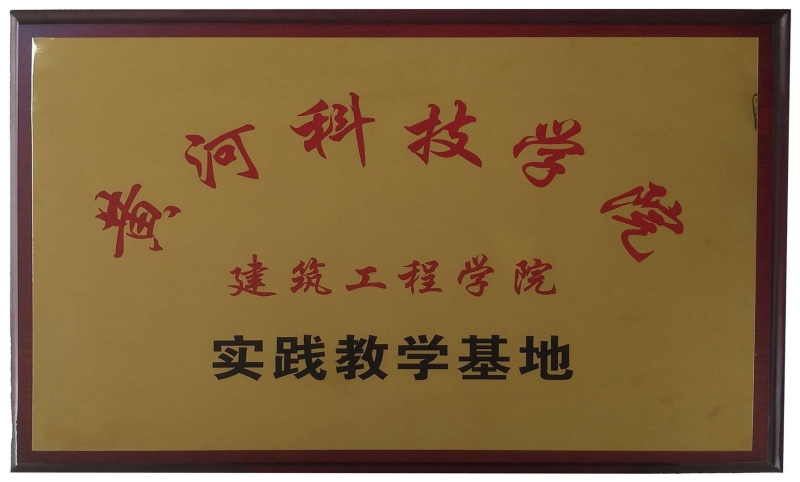 黄河科技学院
建筑工程学院
实践教学基地